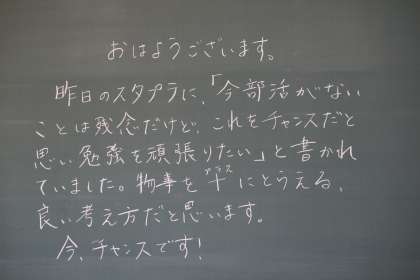 おはようございます。
昨日のスタプラに、「今部活がない
ことは残念だけど、これをチャンスだと
思い勉強を頑張りたい」と書かれ
ていました。物事を＋プラスにとらえる、
良い考え方だと思います。
今、チャンスです!